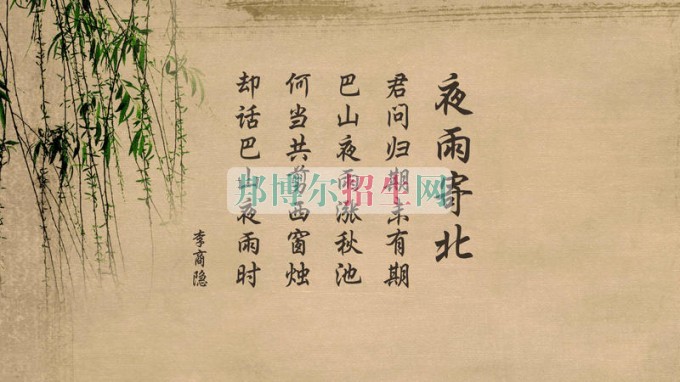 夜雨寄北
君问归期未有期
巴山夜雨涨秋池
何当共剪西窗烛
却话巴山夜雨时
李商隐
邦博尔招生网